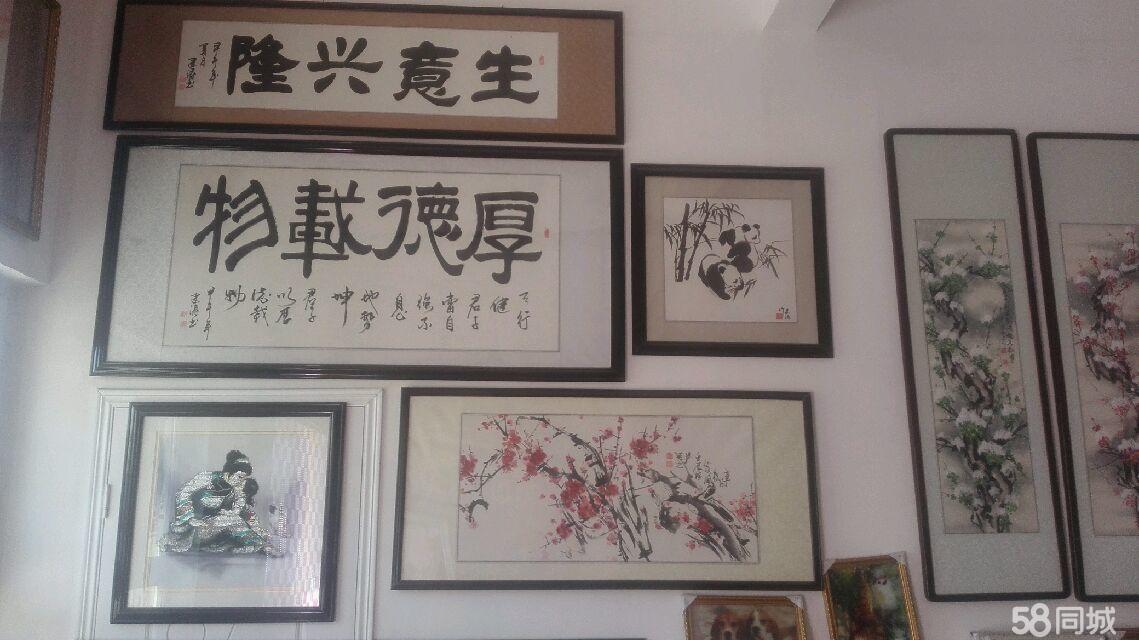 生意兴隆
甲午年
夏月
厚德載物
天行
健
君子
當自
強不
息
地勢
坤
君子
以厚
德載
物
甲午年
58同城